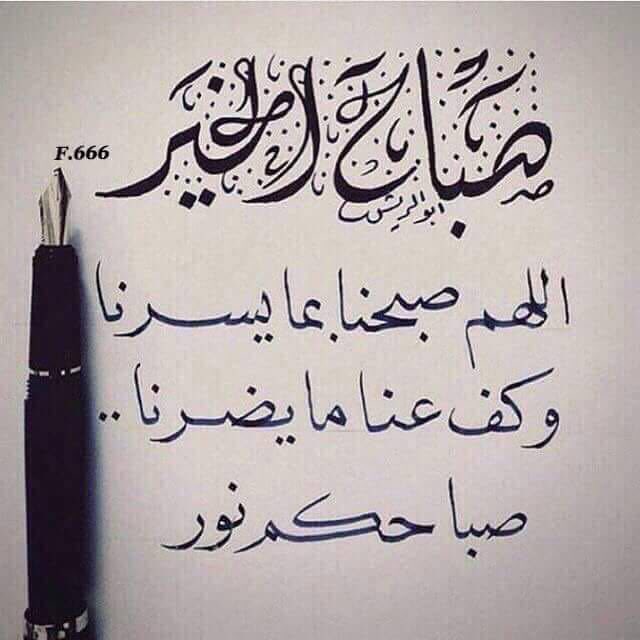 صباح الخير
ابو الريش
F.666
اللهم صبحنا بما يسرنا
وكف عنا ما يضرنا ..
صباحكم نور